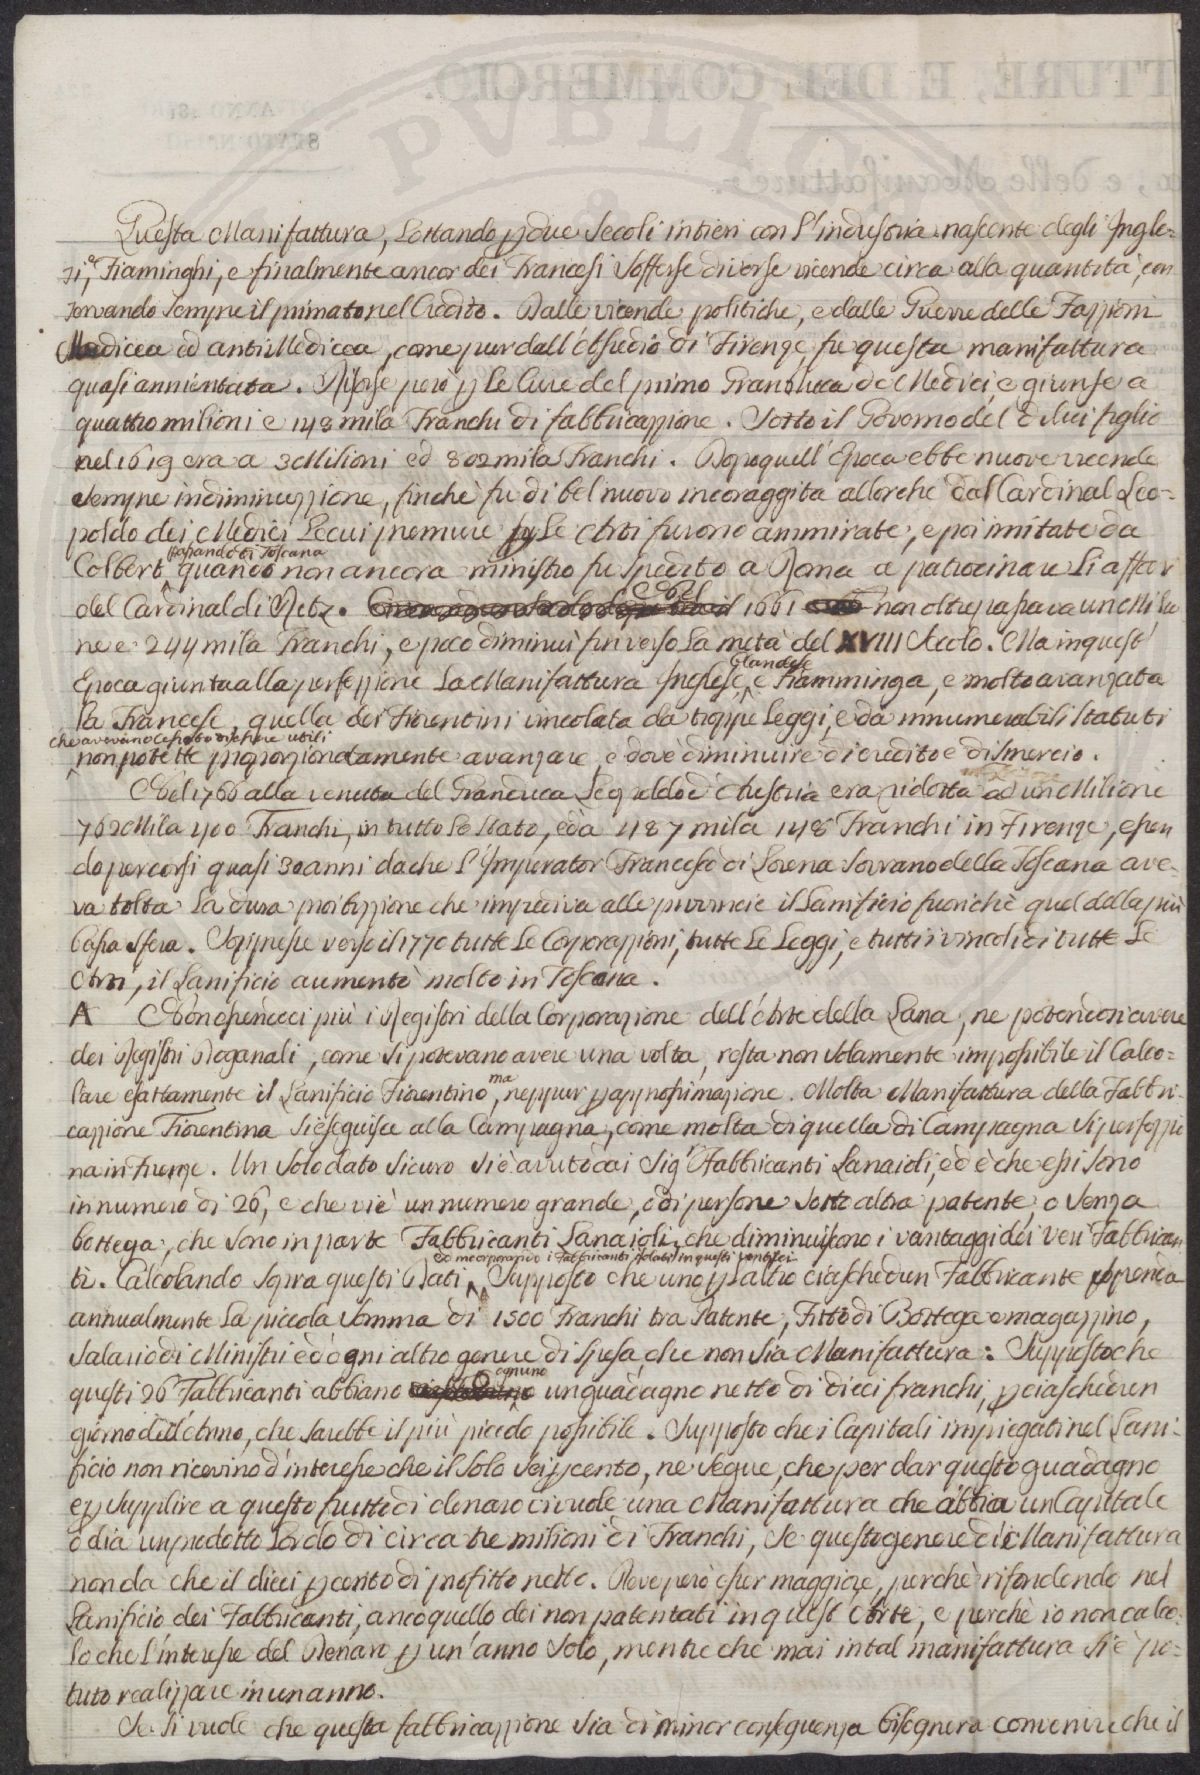 Questa Manifattura, Lottando p due Secoli intieri con l'industria nascente degli Ingle=
si, e Fiaminghi, e finalmente ancor dei Francesi Sofferse diverse vicende circa alla quantità, con
servando Sempre il primato nel Credito. Dalle vicende politiche, e dalle Guerre delle Fazzioni
Medicea ed antiMedicea, come pur dall'Assedio di Firenze fu questa manifattura
quasi annientata. Risorse però p le Cure del primo Granduca de Medici, e giunse a
quattro milioni e 148 mila Franchi di fabbricazzione. Sotto il Governo del di lui figlio
nel 1619 era a 3 Milioni ed 802 mila Franchi. Dopo quell'Epoca ebbe nuove vicende
Sempre in diminuzzione, finchè fu di bel nuovo incoraggita allorchè dal Cardinal Leo=
poldo dei Medici Le cui premure p le Arti furono ammirate, e poi imitate da
passando di Toscana
Colbert quando non ancora ministro fu Spedito a Roma a patrocinare li affari
Nel
del Cardinal di Retz. 1661 non oltrepassava un Milio
ne e 244 mila Franchi, e poco diminuì fin verso la metà del XVIII Secolo. Ma in quest'
Olandese
Epoca giunta alla perfezzione La Manifattura Inglese, e Fiamminga, e molto avanzata
la Francese, quella dei Fiorentini vincolata da troppe Leggi, e da innumerabili Statuti
che avevano cessato di essere utili
non potette proporzionatamente avanzare, e dovè diminuire di credito e di Smercio.
Nel 1766 alla venuta del Granduca Leopoldo d'Austria era ridotta a un Milione
762 Mila 400 Franchi, in tutto lo Stato, ed a 487 mila 148 Franchi in Firenze, essen
do percorsi quasi 30 anni da che L'Imperator Francesco di Lorena Sovrano della Toscana ave=
va tolta La dura proibizzione che impediva alle provincie il Lanificio fuorichè quel della più
bassa sfera. Soppresse verso il 1770 tutte Le Corporazzioni, tutte Le Leggi, e tutti i vincoli di tutte Le
Arti, il Lanificio aumentò molto in Toscana.
A Non essendoci più i Registri della Corporazione dell'Arte della Lana, ne potendosi avere
dei Registri Doganali, come si potevano avere una volta, resta non Solamente impossibile il Calco=
ma
lare esattamente il Lanificio Fiorentino, neppur p approssimazione. Molta Manifattura della Fabbri=
cazzione Fiorentina Si eseguisce alla Campagna, come molta di quella di Campagna Si perfezzio
na in Firenze. Un Solo dato Sicuro Si è avuto dai Sig.ri Fabbricanti Lanaioli, ed è che essi Sono
in numero di 26, e che vi è un numero grande, o di persone Sotto altra patente, o Senza
bottega, che Sono in parte Fabbricanti Lanaioli, che diminuiscono i vantaggi dei veri Fabbrican
ed incorporando i Fabbricanti isolati in questi ventisei
ti. Calcolando Sopra questi Dati, Supposto che uno p l'altro ciaschedun Fabbricante spenda
annualmente La piccola Somma di 1500 Franchi tra Patente, Fitto di Bottega e magazzino,
Salario di Ministri ed ogni altro genere di Spesa, che non Sia Manifattura: Supposto che
ognuno
questi 26 Fabbricanti abbiano un guadagno netto di dieci franchi, p ciaschedun
giorno dell'Anno, che Sarebbe il più piccolo possibile. Supposto che i Capitali impiegati nel Lani=
ficio non ricevino d'interesse che il Solo Sei p cento, ne Segue, che per dar questo guadagno
e p Supplire a questo frutto di denaro ci vuole una Manifattura che abbia un Capitale
o dia un prodotto Lordo di circa tre milioni di Franchi, Se questo genere di Manifattura
non da che il dieci p cento di profitto netto. Deve però esser maggiore, perchè rifondendo nel
Lanificio dei Fabbricanti, anco quello dei non patentati in quest'Arte, e perchè io non calco=
lo che L'interesse del Denaro p un'anno Solo, mentre che mai in tal manifattura Si è po=
tuto realizzare in un anno.
Se Si vuole che questa fabbricazzione Sia di minor conseguenza bisognerà convenire che il